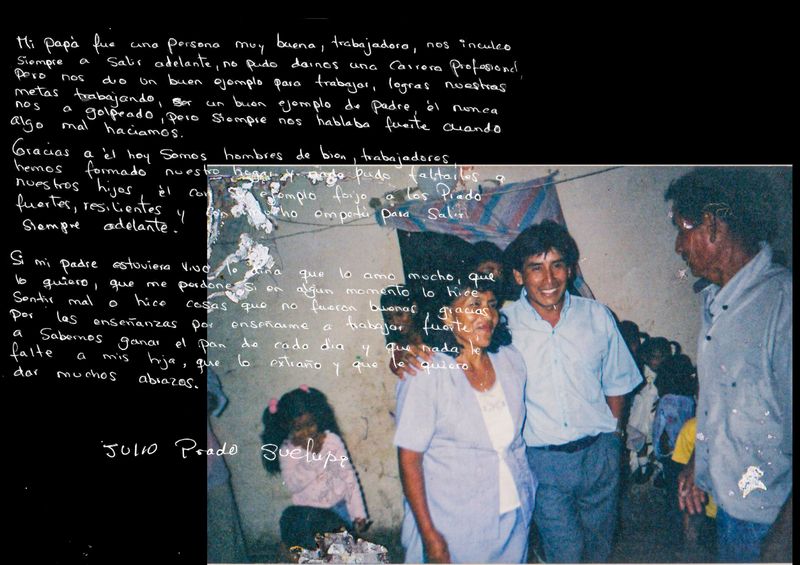 Mi papá fue una persona muy buena, trabajadora, nos inculco
siempre a salir adelante, no pudo darnos una carrera Profesional,
Pero nos dio un buen ejemplo para trabajar, logras nuestras
metas trabajando, ser un buen ejemplo de padre, él nunca
nos a golpeado, pero siempre nos hablaba fuerte cuando
algo mal haciamos.
Gracias a él hoy Somos hombres de bien, trabajadores
hemos formado nuestro hogar y nada pudo faltarles a
nuestros hijos, él con su ejemplo forjo a los Prado
fuertes, resilientes y con mucho empeño para Salir
siempre adelante.
Si mi padre estuviera vivo le diria que lo amo mucho, que
lo quiero, que me perdone si en algun momento lo hice
Sentir mal o hice cosas que no fueron buenas, gracias
por las enseñanzas por enseñarme a trabajar fuerte,
a Sabernos ganar el pan de cada dia y que nada le
falte a mis hija, que lo extraño y que le quiero
dar muchos abrazos.
JULIO Prado